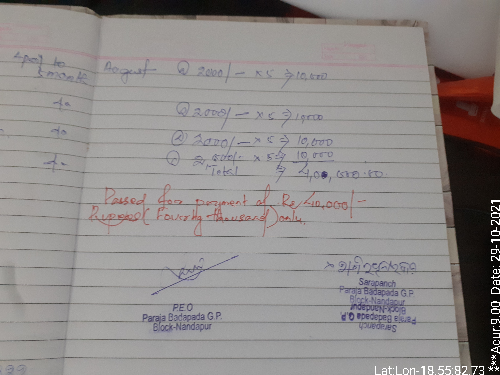 April to August @ 2000/- × 5 ⇒ 10,000
5 month
-do- @ 2000/- × 5 ⇒ 10,000
-do- @ 2000/- × 5 ⇒ 10,000
-do- @ 2000/- × 5 ⇒ 10,000
Total ⇒ 40,000.00
Passed for payment of Rs 40,000/-
Rupees (Fourty thousand) only.
P.E.O
Paraja Badapada G.P.
Block-Nandapur
Sarapanch
Paraja Badapada G.P.
Block-Nandapur
Sarapanch
Paraja Badapada G.P.
Block-Nandapur
***Acur:9.00 Date: 29-10-2021
Lat:Lon-18.55:82.73